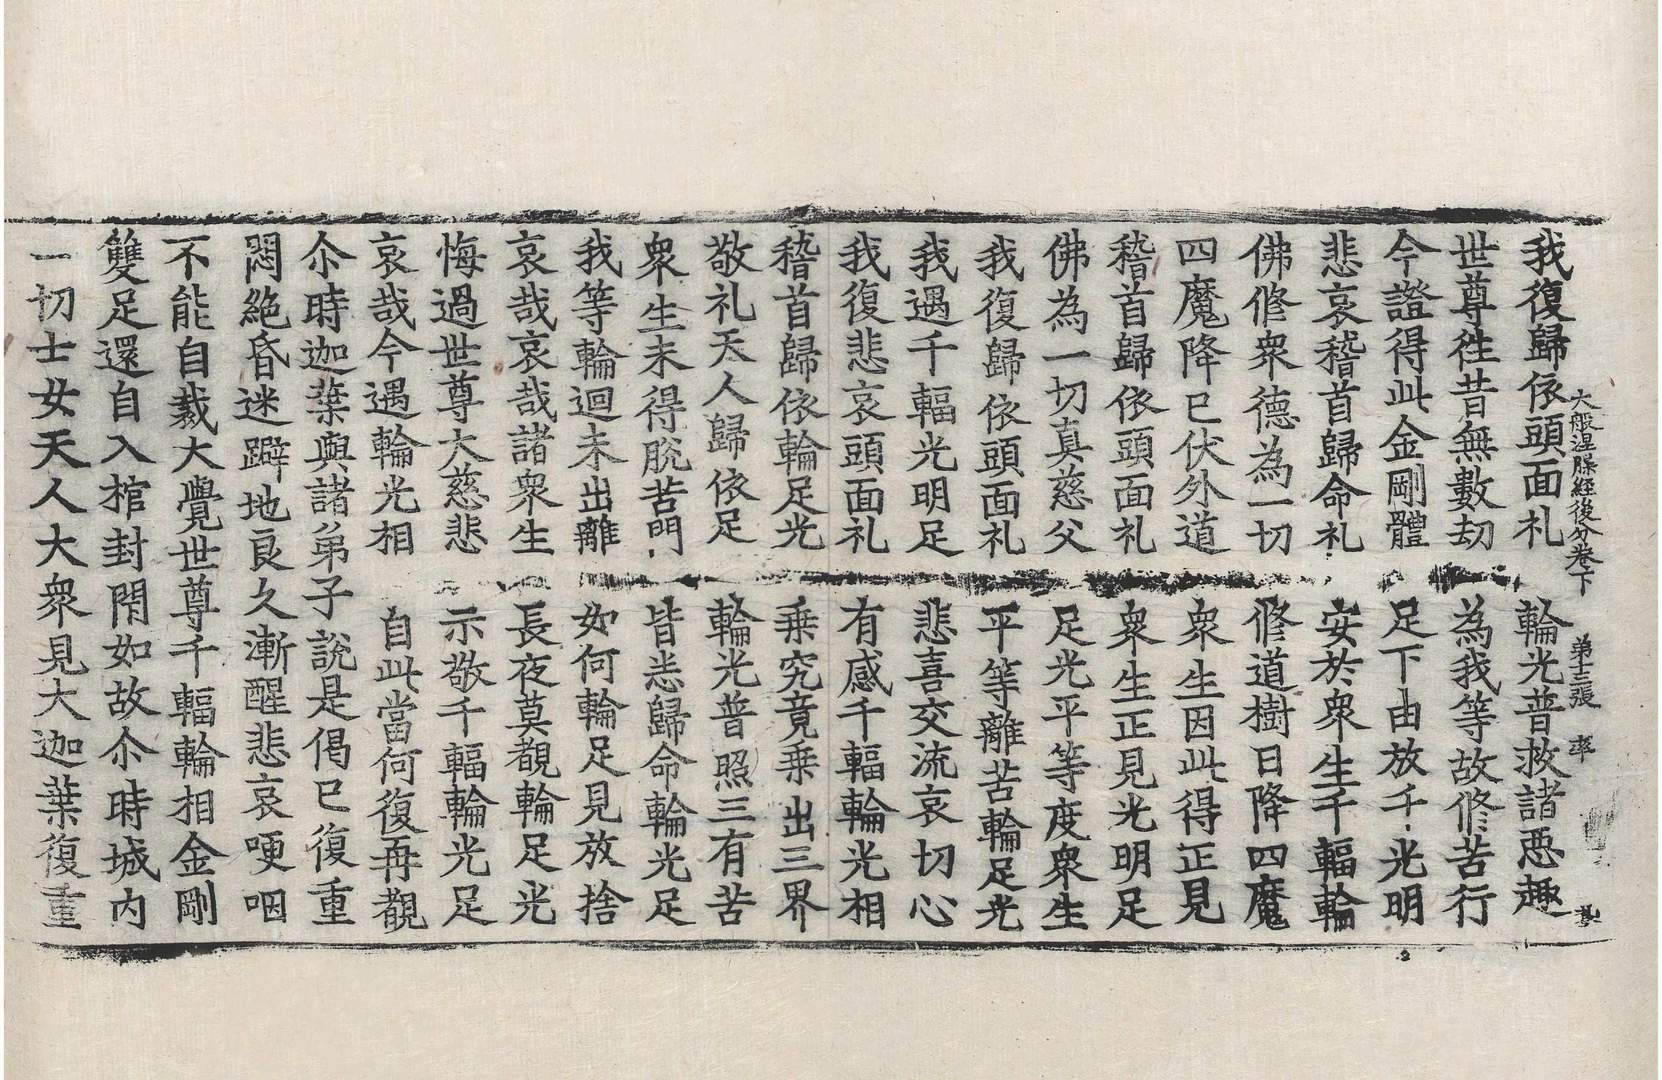 大般涅槃經後分卷下 苐十三張 率
我復歸依頭面礼 輪光普救諸惡趣
世尊徃昔無數劫 為我等故修苦行
今證得此金剛體 足下由放千光明
悲哀稽首歸命礼 安於衆生千輻輪
佛修衆德為一切 修道樹日降四魔
四魔降已伏外道 衆生因此得正見
稽首歸依頭面礼 衆生正見光明足
佛為一切真慈父 足光平等度衆生
我復歸依頭面礼 平等離苦輪足光
我遇千輻光明足 悲喜交流哀切心
我復悲哀頭面礼 有感千輻輪光相
稽首歸依輪足光 乗究竟乗出三界
敬礼天人歸依足 輪光普照三有苦
衆生未得脫苦門 皆悉歸命輪光足
我等輪迴未出離 如何輪足見放捨
哀哉哀哉諸衆生 長夜莫覩輪足光
悔過世尊大慈悲 示敬千輻輪光足
哀哉今遇輪光相 自此當何復再覩
尒時迦葉與諸弟子說是偈已復重
悶絕昏迷躃地良久漸醒悲哀哽咽
不能自裁大覺世尊千輻輪相金剛
雙足還自入棺封閇如故尒時城內
一切士女天人大衆見大迦葉復重